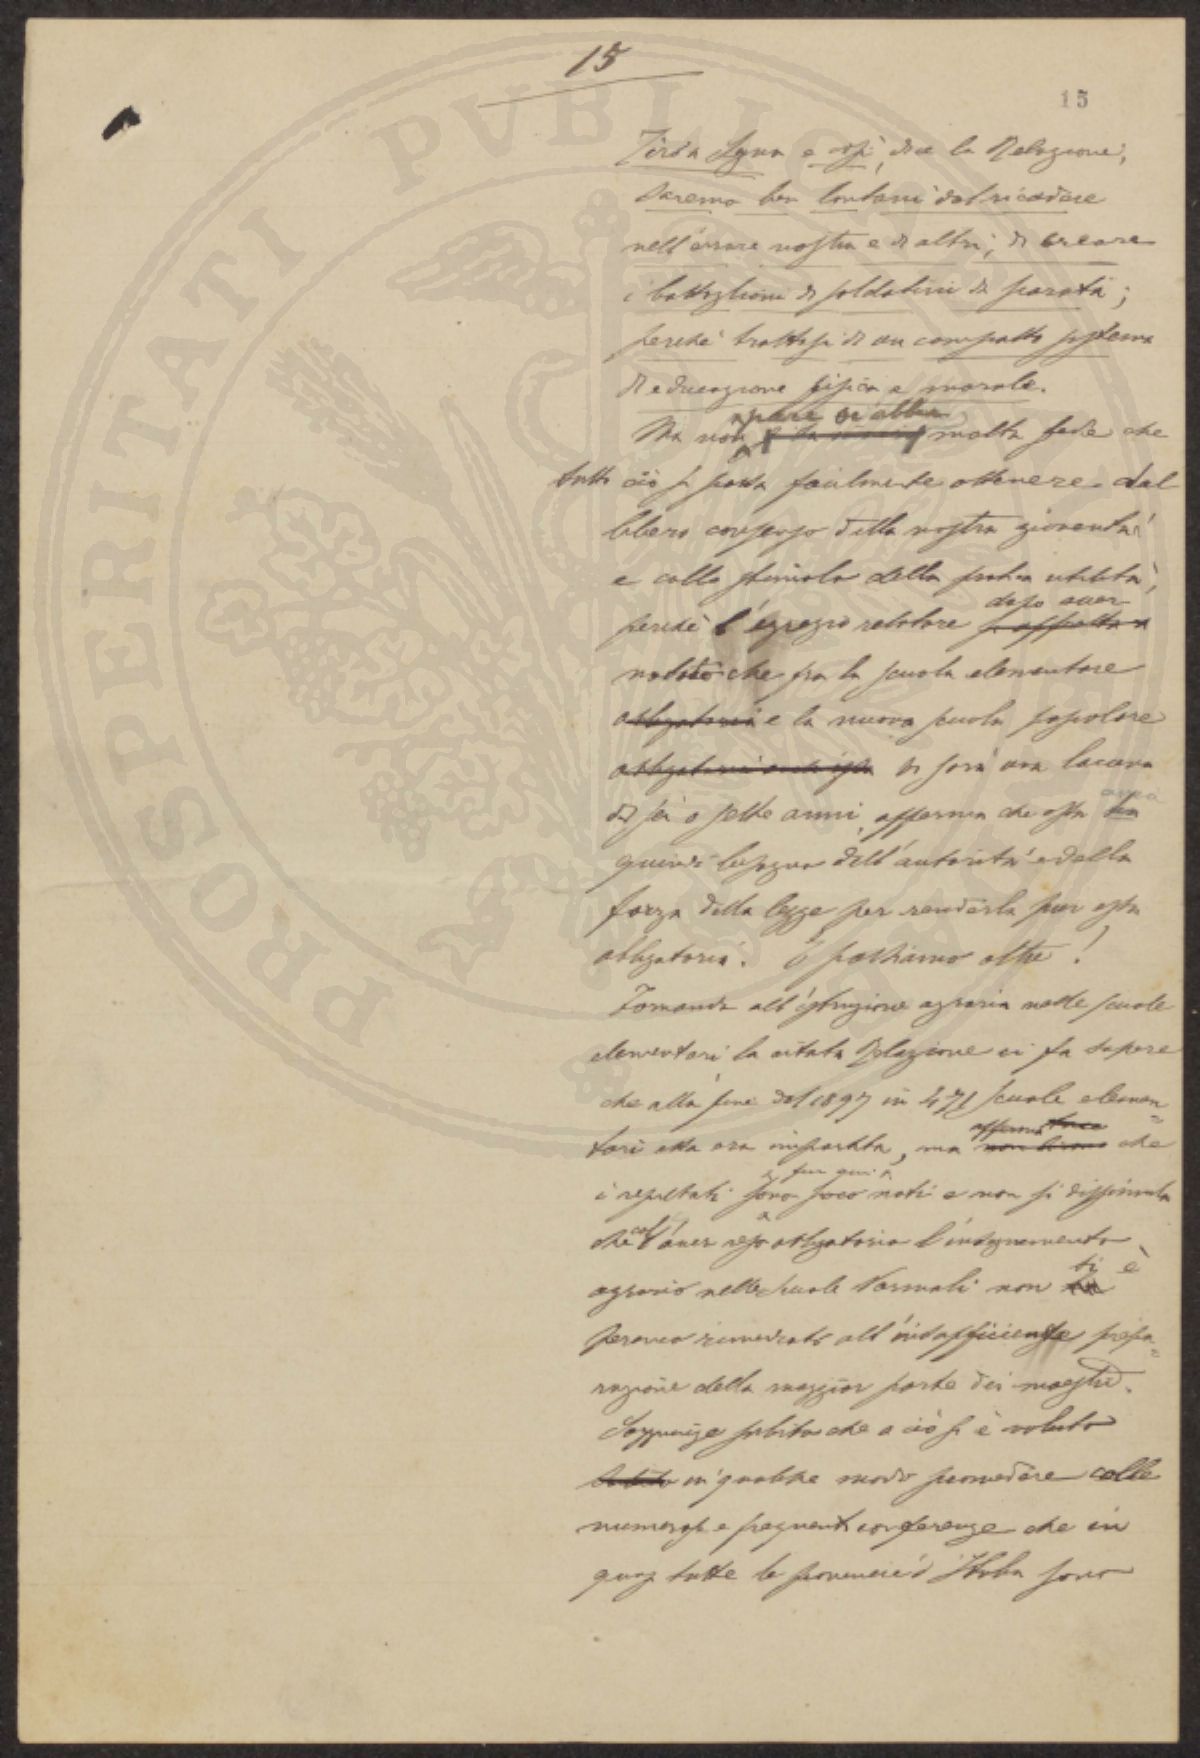 15
15
e così, dice la Relazione,
saremo ben lontani dal ricadere
nell'errore nostro e di altri, di creare
i battaglioni di soldatini da parata;
perchè trattasi di un compatto sistema
di educazione fisica e morale.
pare si abbia
Ma non molta fede che
tutto ciò si possa facilmente ottenere dal
libero consenso della nostra gioventù
e collo stimolo della pratica utilità,
dopo aver
perchè l'egregio relatore si affretta a
notato che fra la scuola elementare
obbligatoria e la nuova scuola popolare
obbligatoria vi sarà una lacuna
di sei o sette anni, afferma che essa ha
avrà
quindi bisogno dell'autorità e della
forza della legge per renderla pur essa
obbligatoria. E passiamo oltre!
Tornando all'istruzione agraria nelle scuole
elementari la citata Relazione ci fa sapere
che alla fine del 1897 in 471 scuole elemen=
afferma
tari essa era impartita, ma che
fin qui
i resultati sono poco noti e non si dissimula
che coll'aver reso obbligatorio l'insegnamento
si è
agrario nelle scuole Normali non ha
peranco rimediato all'insufficiente prepa=
razione della maggior parte dei maestri.
Soggiunge subito che a ciò si è voluto
in qualche modo provvedere colle
numerose e frequenti conferenze che in
quasi tutte le provincie d'Italia sono
PROSPERITATI PVBLICAE